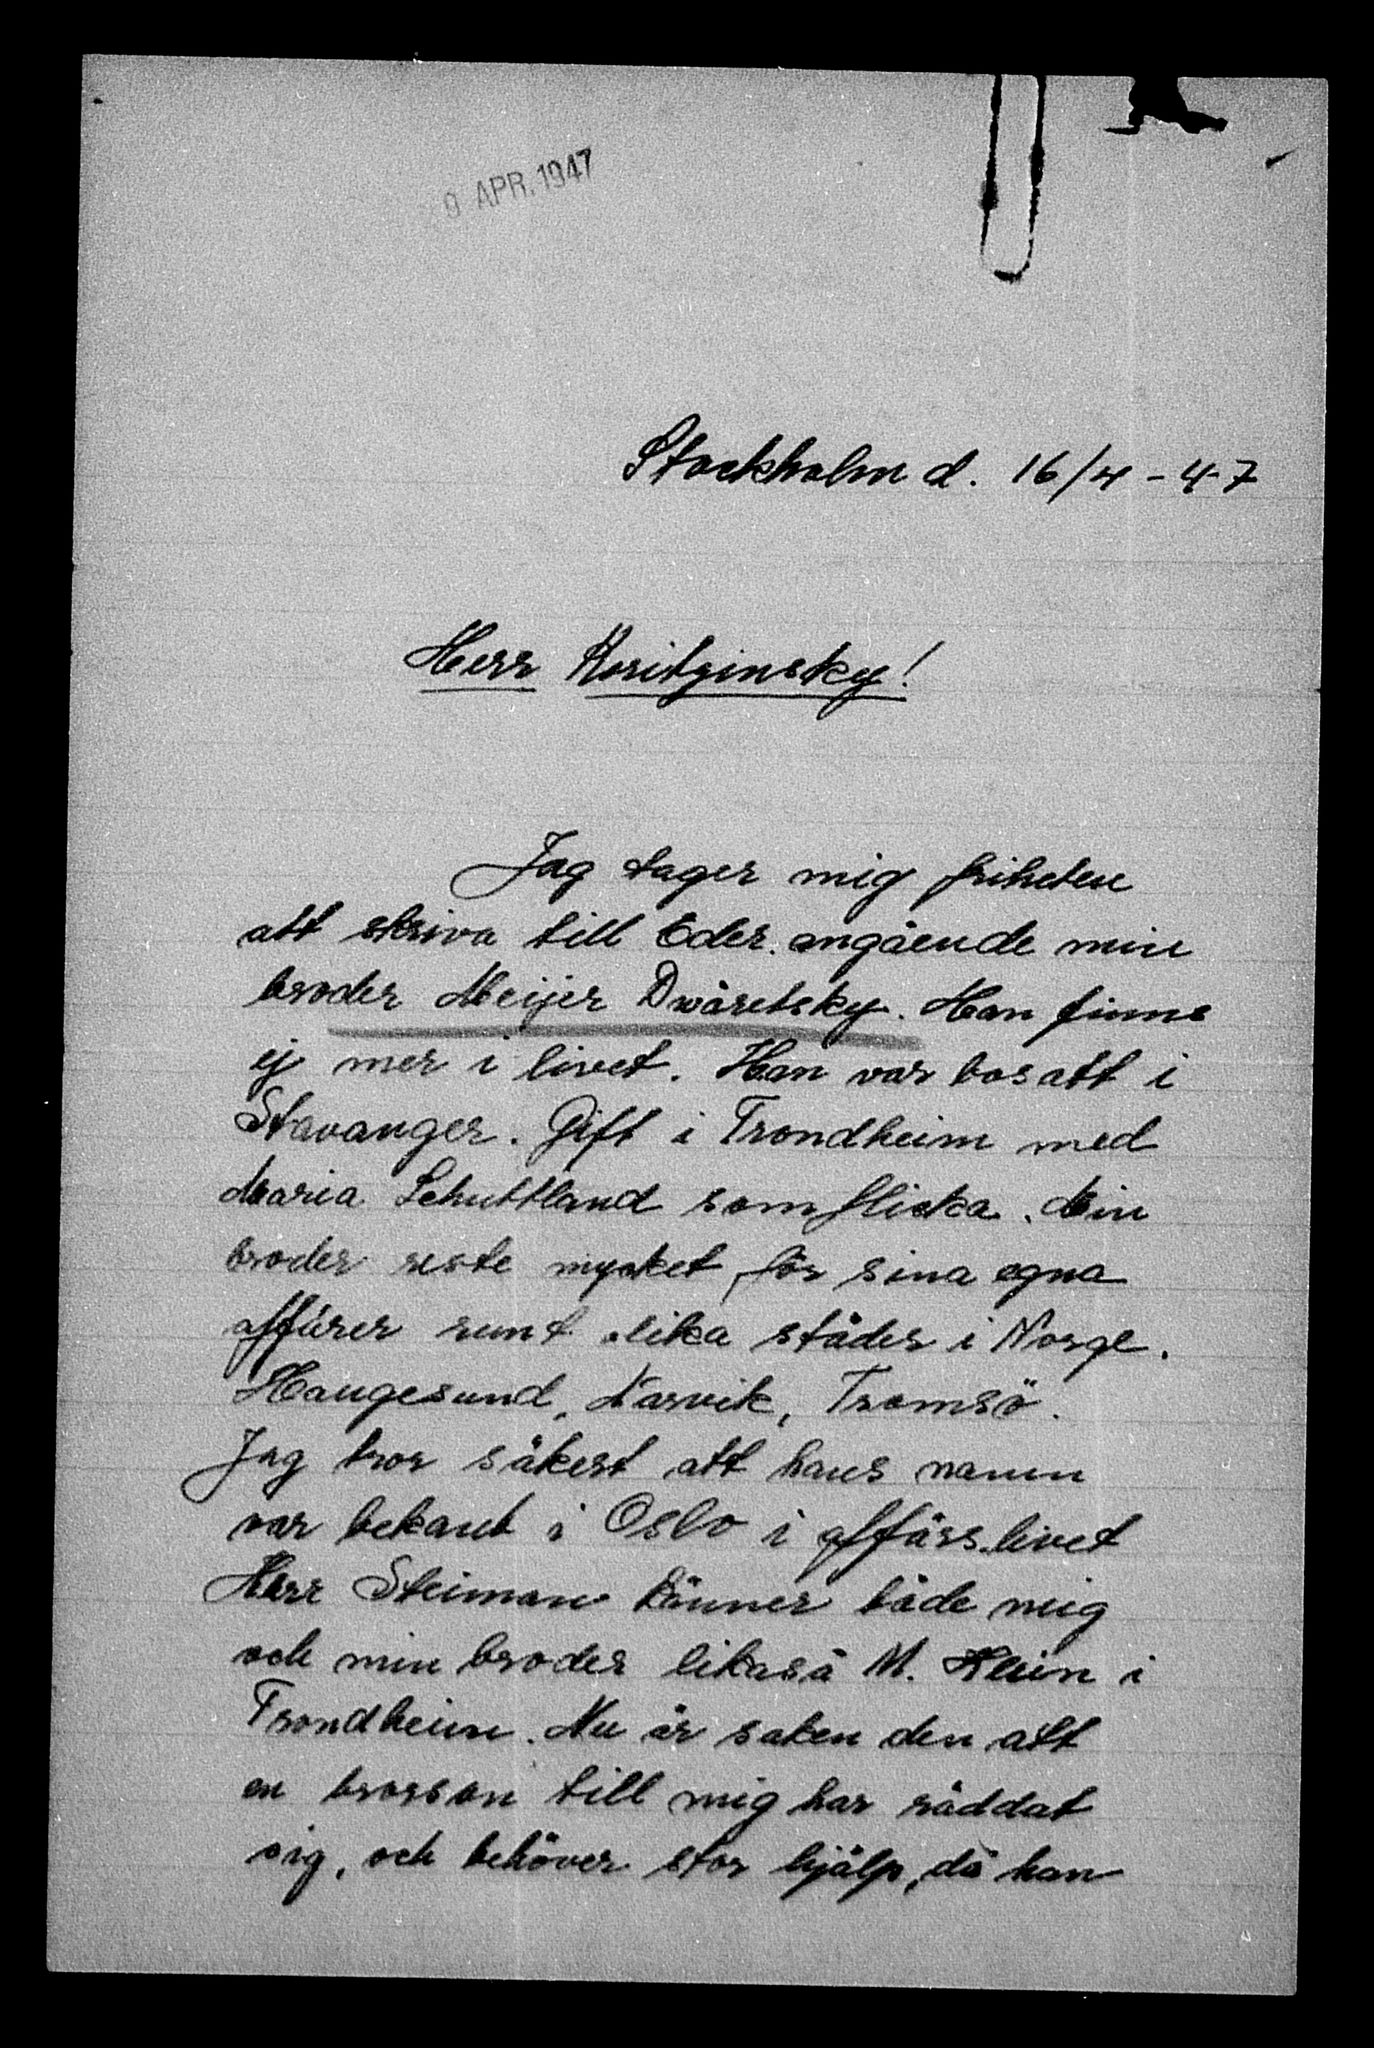 9 APR. 1947
Stockholm d. 16/4 - 47
Herr Koritzinsky!
Jag tager mig friheten
att skriva till Eder. angående min
broder Meijer Dwåretsky. Han finns
ej mer i livet. Han var bosatt i
Stavanger. Gift i Trondheim med
Maria Schuttland som flicka. Min
broder reste mycket för sina egna
affärer runt olika städer i Norge.
Haugesund, Narvik, Tromsö.
Jag tror säkert att hans namn
var bekant i Oslo i affärslivet
Herr Steiman känner både mig
och min broder likaså M. Klein i
Trondheim. Nu är saken den att
en brorson till mig har räddat
sig, och behöver stor hjälp, då han